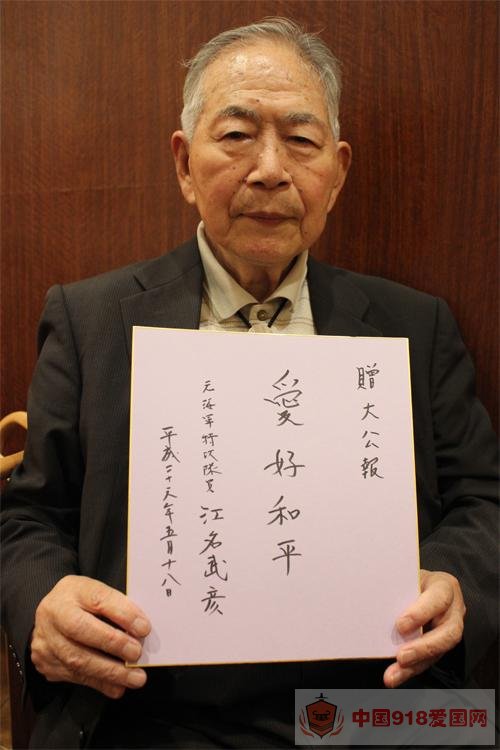 贈大公報
愛好和平
元海軍特攻隊員 江名武彦
平成二十六年五月十八日
中国918爱国网